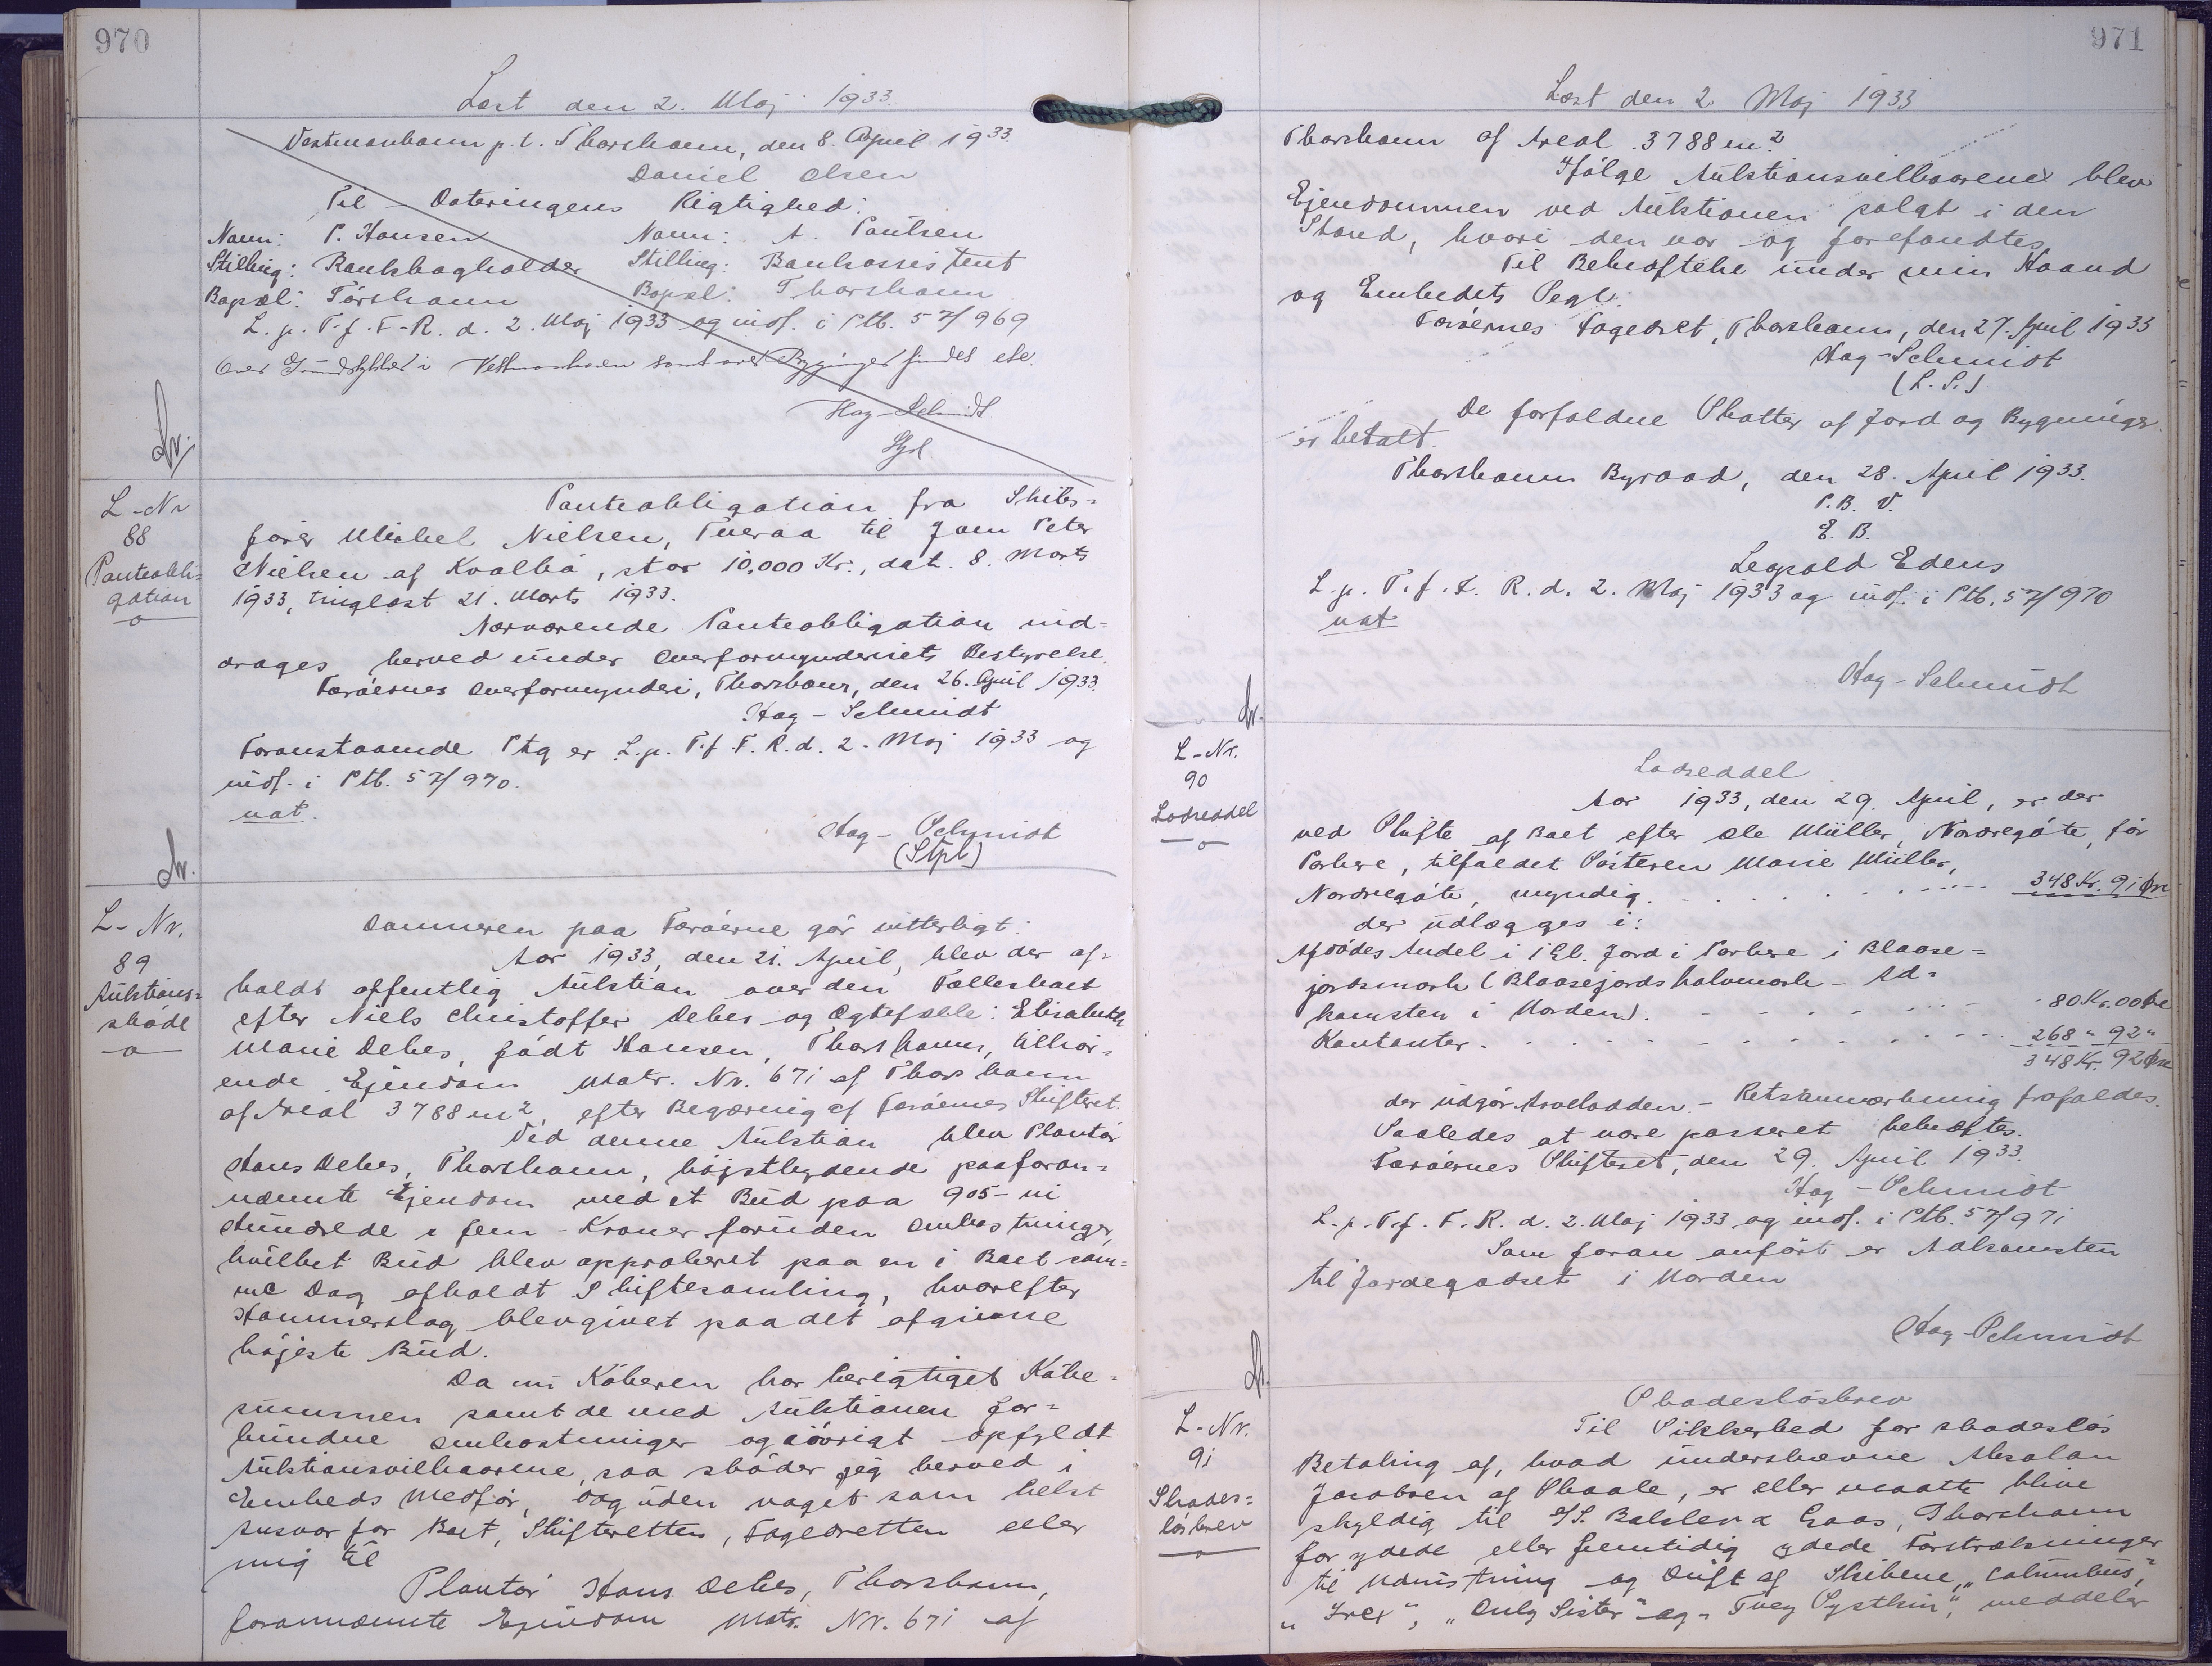 970
Læst den 2. Maj 1933.
Vestmanhavn p.t. Thorshavn, den 8. April 1933.
Daniel Olsen
Til Dateringens Rigtighed:
Navn: P. Hansen Navn: A. Paulsen
Stilling: Bankbogholder Stilling: Bankassistent
Bopæl: Tórshavn Bopæl: Thorshavn
L.p.T.f.F-R. d. 2. Maj 1933 og indf. i Ptb. 57/969
Over Grundstykket i Vestmanhavn samt over Bygninger findes etc.
Hag-Schmidt.
Stpl
L-Nr
88
Panteobli=
gation
Panteobligation fra Skibs=
fører Michel Nielsen, Tveraa til Joen Peter
Nielsen af Kvalbø, stor 10,000 Kr., dat. 8. Marts
1933, tinglæst 21. Marts 1933.
Nærværende Panteobligation ind=
drages herved under Overformynderiets Bestyrelse.
Færøernes Overformynderi, Thorshavn, den 26. April 1933.
Hag-Schmidt
Foranstaaende Ptg er L.p.T.f.F.R.d. 2. Maj 1933 og
indf. i Ptb. 57/970.
uat.
Hag-Schmidt
(Stpl)
L-Nr.
89
Auktions=
skøde
Dommeren paa Færøerne gør vitterligt:
Aar 1933, den 21. April, blev der af=
holdt offentlig Auktion over den Fællesboet
efter Niels Christoffer Debes og Ægtefælle: Elisabeth
Marie Debes, født Hansen, Thorshavn, tilhør=
ende Ejendom Matr. Nr. 671 af Thorshavn
af Areal 3788 m², efter Begæring af Færøernes Skifteret.
Ved denne Auktion blev Plantør
Hans Debes, Thorshavn, højstbydende paa foran=
nævnte Ejendom med et Bud paa 905 - ni
Hundrede & fem - Kroner foruden Omkostninger,
hvilket Bud blev approberet paa en i Boet sam=
me Dag afholdt Skiftesamling, hvorefter
Hammerslag blev givet paa det afgivne
højeste Bud.
Da nu Køberen har berigtiget Købe=
summen samt de med Auktionen for=
bundne Omkostninger og iøvrigt opfyldt
Auktionsvilkaarene, saa skøder jeg herved i
Embeds Medfør, dog uden noget som helst
Ansvar for Boet, Skifteretten, Fogedretten eller
mig til
Plantør Hans Debes, Thorshavn,
forannævnte Ejendom Matr. Nr. 671 af
971
Læst den 2. Maj 1933
Thorshavn af Areal 3788 m².
Ifølge Auktionsvilkaarene blev
Ejendommen ved Auktionen solgt i den
Stand, hvori den var og forefandtes.
Til Bekræftelse under min Haand
og Embedets Segl.
Færøernes Fogedret, Thorshavn, den 27. April 1933
Hag-Schmidt
(L.S.)
De forfaldne Skatter af Jord og Bygninger
er betalt.
Thorshavn Byraad, den 28. April 1933.
P.B.V.
E.B.
Leopold Edens
L.p.T.f.F.R.d. 2. Maj 1933 og indf. i Ptb. 57/970
uat
Hag-Schmidt
L-Nr.
90
Lodseddel
Lodseddel
Aar 1933, den 29. April, er der
ved Skifte af Boet efter Ole Müller, Nordregøte, før
Porkere, tilfaldet Søsteren Marie Müller,
Nordregøte, myndig. 348 Kr. 91 Øre
der udlægges i:
Afdødes Andel i 1 Gl. Jord i Porkere i Blaase=
jordsmark (Blaasejords halvmark - Ad=
komsten i Orden). 80 Kr. 00 Øre
Kontanter. 268 " 92 "
348 Kr. 92 Øre
der udgør Arvelodden. - Retsanmærkning frafaldes.
Saaledes at være passeret bekræftes.
Færøernes Skifteret, den 29. April 1933.
Hag-Schmidt
L.p.T.f.F.R.d. 2. Maj 1933 og indf. i Ptb. 57/971
Som foran anført er Adkomsten
til Jordegodset i Orden
Hag-Schmidt
L-Nr.
91
Skades=
løsbrev
Skadesløsbrev
Til Sikkerhed for skadesløs
Betaling af, hvad underskrevne Absalon
Jacobsen af Skaale, er eller maatte blive
skyldig til I/S. Balslev & Gaas, Thorshavn
for ydede eller fremtidig ydede Forstrækninger
til Udrustning og Drift af Skibene "Columbus",
"Irex", "Only Sister" og "Tvey Systkin", meddeler